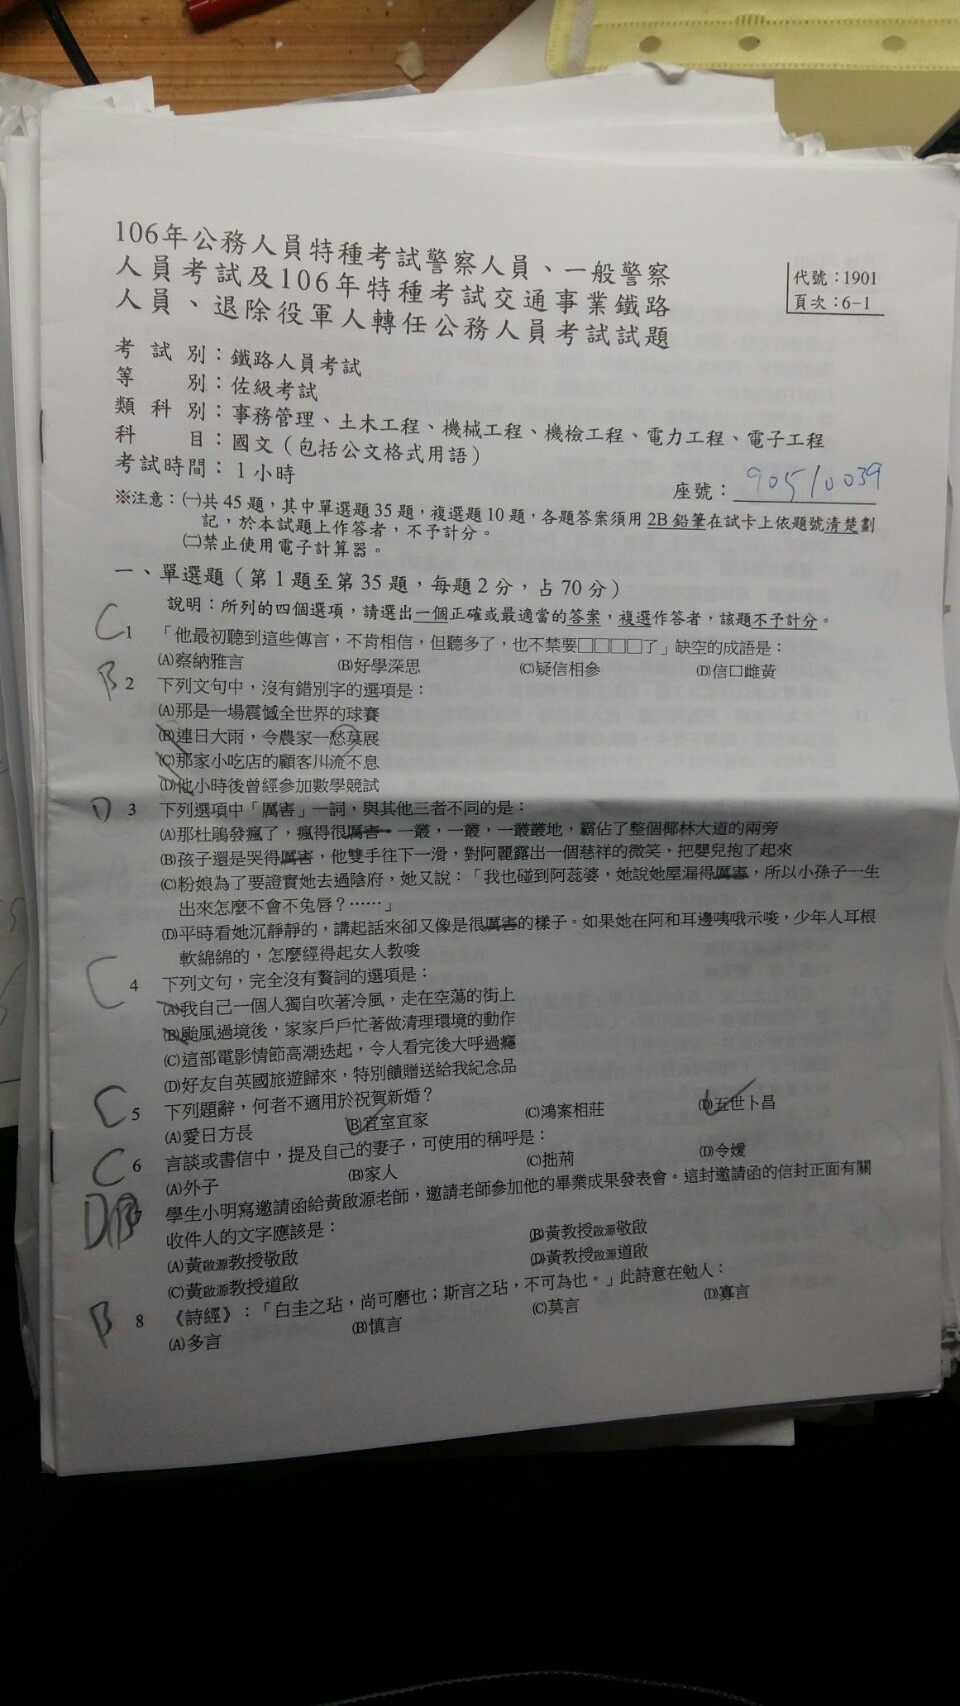 106年公務人員特種考試警察人員、一般警察
人員考試及106年特種考試交通事業鐵路
人員、退除役軍人轉任公務人員考試試題
代號：1901
頁次：6-1
考試別：鐵路人員考試
等別：佐級考試
類科別：事務管理、土木工程、機械工程、機檢工程、電力工程、電子工程
科目：國文（包括公文格式用語）
考試時間：1小時
座號：90510039
※注意：㈠共45題，其中單選題35題，複選題10題，各題答案須用2B鉛筆在試卡上依題號清楚劃
記，於本試題上作答者，不予計分。
㈡禁止使用電子計算器。
一、單選題（第1題至第35題，每題2分，占70分）
說明：所列的四個選項，請選出一個正確或最適當的答案，複選作答者，該題不予計分。
C 1 「他最初聽到這些傳言，不肯相信，但聽多了，也不禁要□□□□了」缺空的成語是：
(A)察納雅言 (B)好學深思 (C)疑信相參 (D)信口雌黃
B 2 下列文句中，沒有錯別字的選項是：
(A)那是一場震憾全世界的球賽
(B)連日大雨，令農家一愁莫展
(C)那家小吃店的顧客川流不息
(D)他小時後曾經參加數學競試
D 3 下列選項中「厲害」一詞，與其他三者不同的是：
(A)那杜鵑發瘋了，瘋得很厲害。一叢，一叢，一叢叢地，霸佔了整個椰林大道的兩旁
(B)孩子還是哭得厲害，他雙手往下一滑，對阿麗露出一個慈祥的微笑，把嬰兒抱了起來
(C)粉娘為了要證實她去過陰府，她又說：「我也碰到阿蕊婆，她說她屋漏得厲害，所以小孫子一生
出來怎麼不會不兔唇？……」
(D)平時看她沉靜靜的，講起話來卻又像是很厲害的樣子。如果她在阿和耳邊咦哦示唆，少年人耳根
軟綿綿的，怎麼經得起女人教唆
C 4 下列文句，完全沒有贅詞的選項是：
(A)我自己一個人獨自吹著冷風，走在空蕩的街上
(B)颱風過境後，家家戶戶忙著做清理環境的動作
(C)這部電影情節高潮迭起，令人看完後大呼過癮
(D)好友自英國旅遊歸來，特別饋贈送給我紀念品
C 5 下列題辭，何者不適用於祝賀新婚？
(A)愛日方長 (B)宜室宜家 (C)鴻案相莊 (D)五世卜昌
C 6 言談或書信中，提及自己的妻子，可使用的稱呼是：
(A)外子 (B)家人 (C)拙荊 (D)令嬡
7 學生小明寫邀請函給黃啟源老師，邀請老師參加他的畢業成果發表會。這封邀請函的信封正面有關
收件人的文字應該是：
(A)黃啟源教授敬啟 (B)黃教授啟源敬啟
(C)黃啟源教授道啟 (D)黃教授啟源道啟
B 8 《詩經》：「白圭之玷，尚可磨也；斯言之玷，不可為也。」此詩意在勉人：
(A)多言 (B)慎言 (C)莫言 (D)寡言